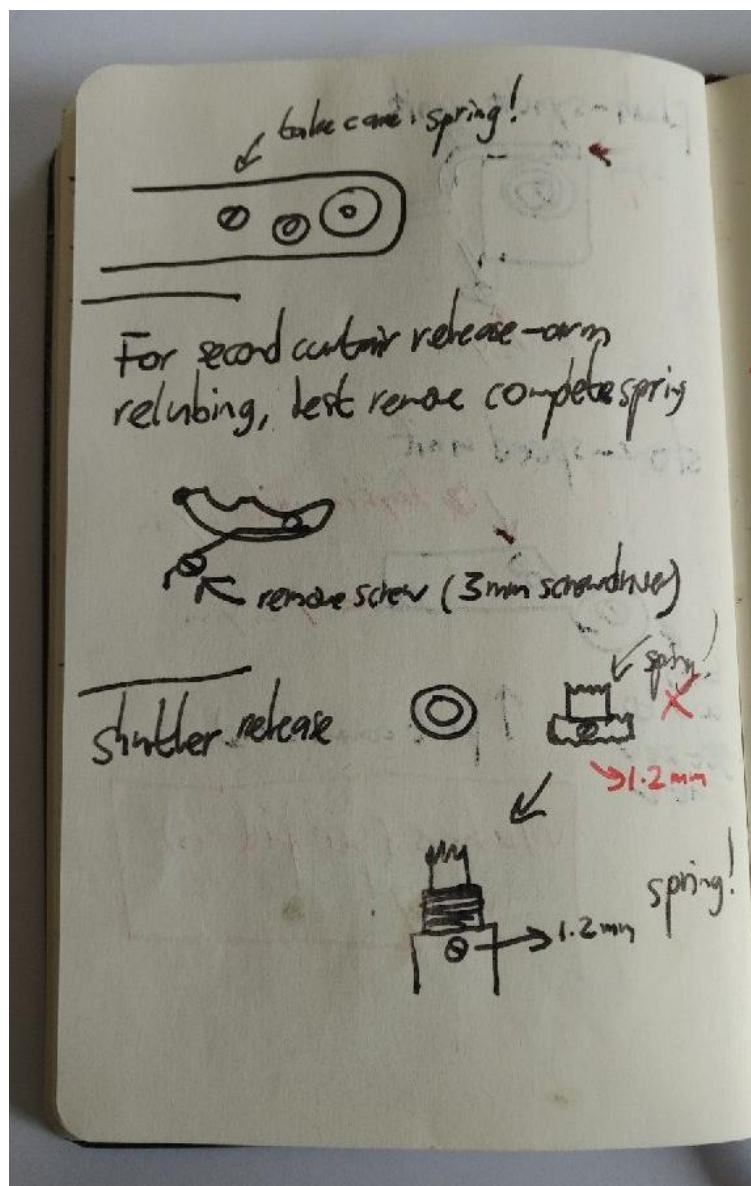 take care, spring!
For second curtain release-arm
relubing, best remove complete spring
remove screw (3mm screwdriver)
spring
shutter release
1.2mm
spring!
1.2mm